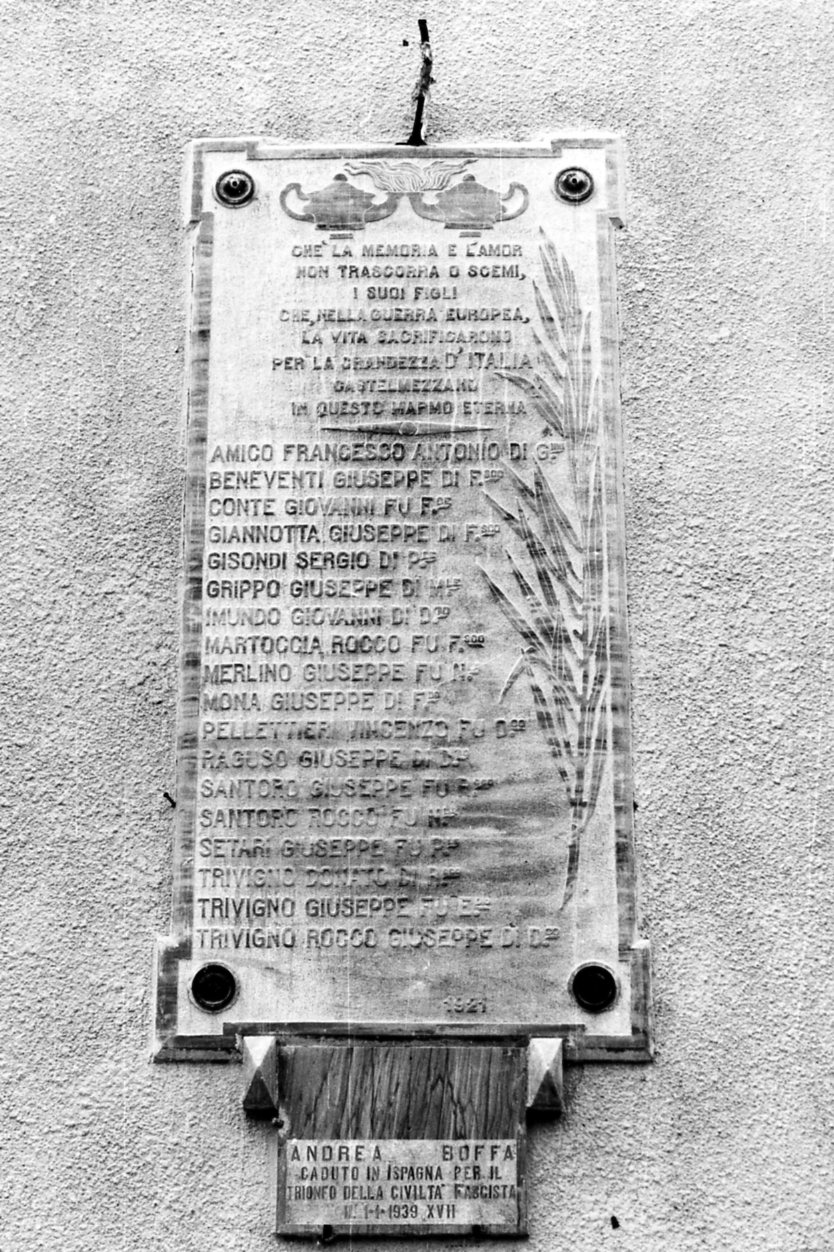 CHE' LA MEMORIA E L'AMOR
NON TRASCORRA O SCEMI,
I SUOI FIGLI
CHE, NELLA GUERRA EUROPEA,
LA VITA SACRIFICARONO
PER LA GRANDEZZA D'ITALIA
CASTELMEZZANO
IN QUESTO MARMO ETERNA
AMICO FRANCESCO ANTONIO DI
BENEVENTI GIUSEPPE DI
CONTE GIOVANNI FU
GIANNOTTA GIUSEPPE DI F.SCO
GISONDI SERGIO DI
GRIPPO GIUSEPPE DI
IMUNDO GIOVANNI DI
MARTOCCIA ROCCO FU F.SCO
MERLINO GIUSEPPE FU
MONA GIUSEPPE DI
PELLETTIERI VINCENZO FU
RAGUSO GIUSEPPE DI
SANTORO GIUSEPPE FU
SANTORO ROCCO FU
SETARI GIUSEPPE FU
TRIVIGNO DONATO DI
TRIVIGNO GIUSEPPE FU
TRIVIGNO ROCCO GIUSEPPE DI
1921
ANDREA BOFFA
CADUTO IN ISPAGNA PER IL
TRIONFO DELLA CIVILTA' FASCISTA
1-1-1939 XVII